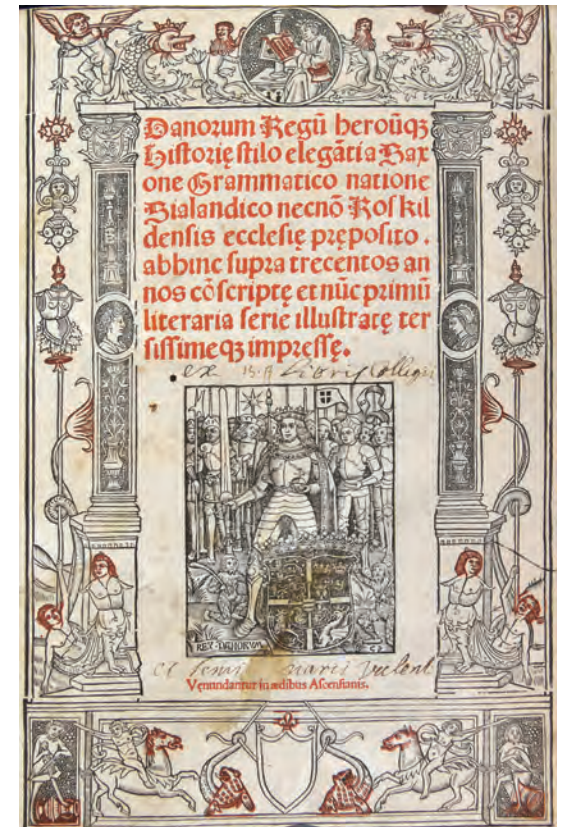 Danorum Regū heroūqꝫ
Historię stilo elegāti a Sax
one Grammatico natione
Sialandico necnō Roskil
densis ecclesię pręposito.
abhinc supra trecentos an
nos cōscriptę et nūc primū
literaria serie illustratę ter
sissimeqꝫ impressę.
ex Libris Collegii
REX·DANORVM
et semi
Vęnundantur in ædibus Ascensianis.